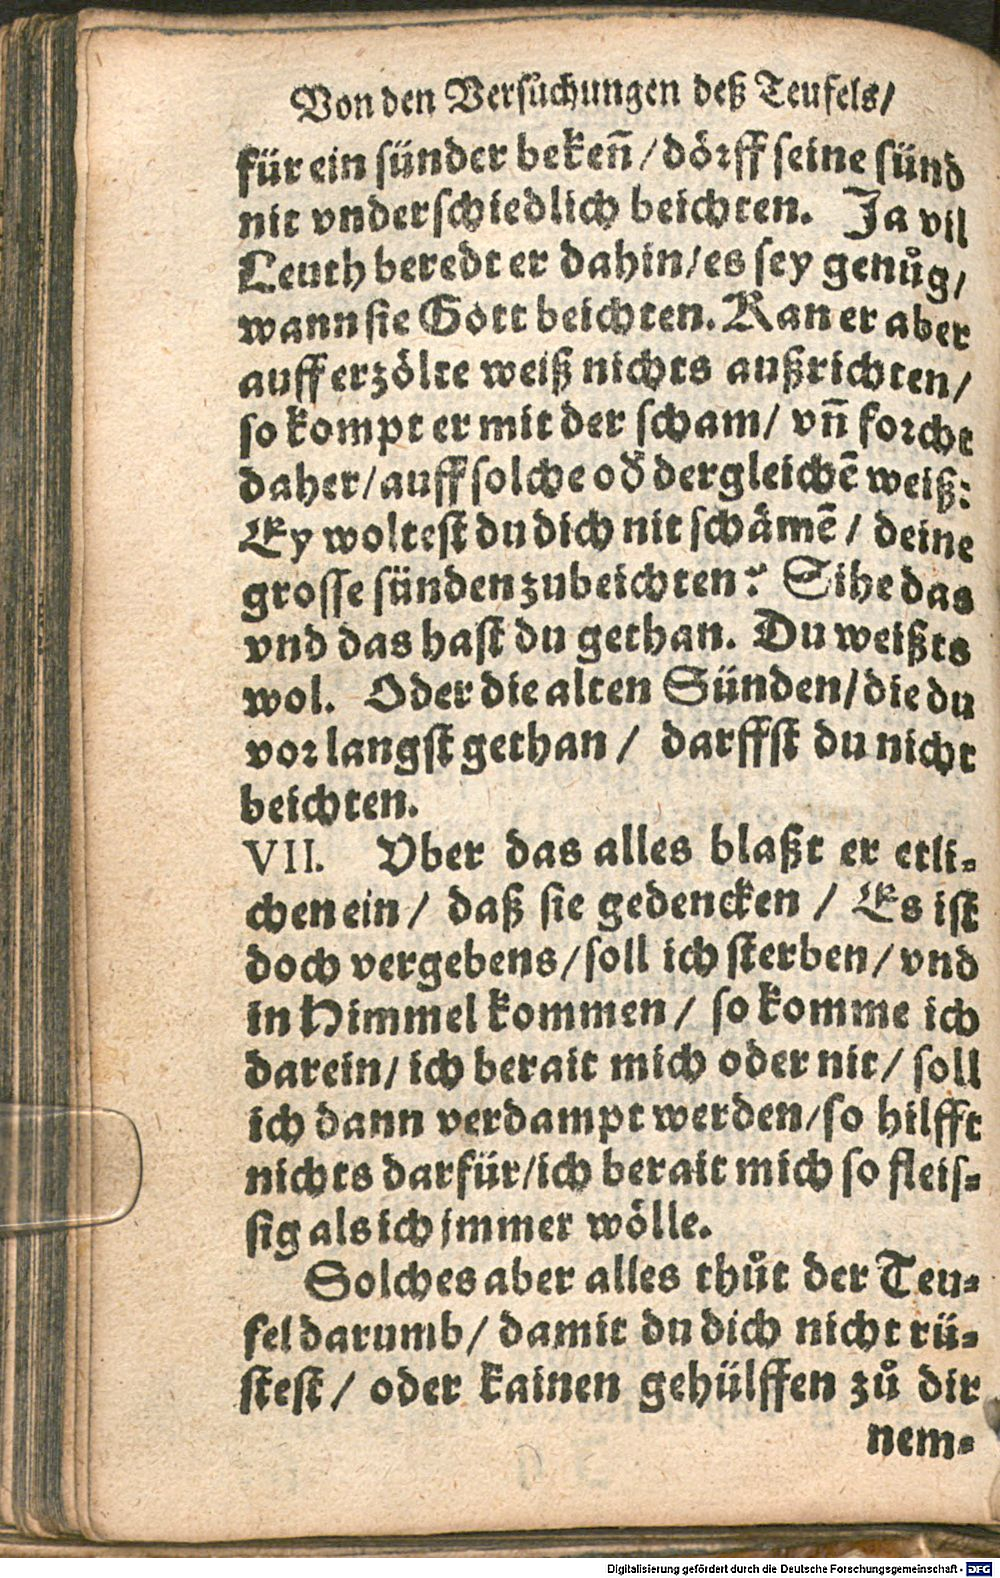 Von den Versuͦchungen deß Teufels/
für ein sünder bekeñ/dörff seine sünd
nit vnderschiedlich beichten. Ja vil
Leuth beredt er dahin/es sey genuͦg/
wann sie Gott beichten. Kan er aber
auff erzölte weiß nichts außrichten/
so kompt er mit der scham/ vñ forcht
daher/auff solche od̃ dergleichẽ weiß:
Ey woltest du dich nit schämẽ/ deine
grosse sünden zubeichten? Sihe das
vnd das hast du gethan. Du weißts
wol. Oder die alten Sünden/die du
vor langst gethan/ darffst du nicht
beichten.
VII. Vber das alles blaßt er etli-
chen ein/ daß sie gedencken/ Es ist
doch vergebens/soll ich sterben/vnd
in Himmel kommen/ so komme ich
darein/ich berait mich oder nit/soll
ich dann verdampt werden/so hilfft
nichts darfür/ich berait mich so fleis-
sig als ich jmmer wölle.
Solches aber alles thuͦt der Teu-
fel darumb/ damit du dich nicht rü-
stest/ oder kainen gehülffen zuͦ dir
nem-
Digitalisierung gefördert durch die Deutsche Forschungsgemeinschaft - DFG